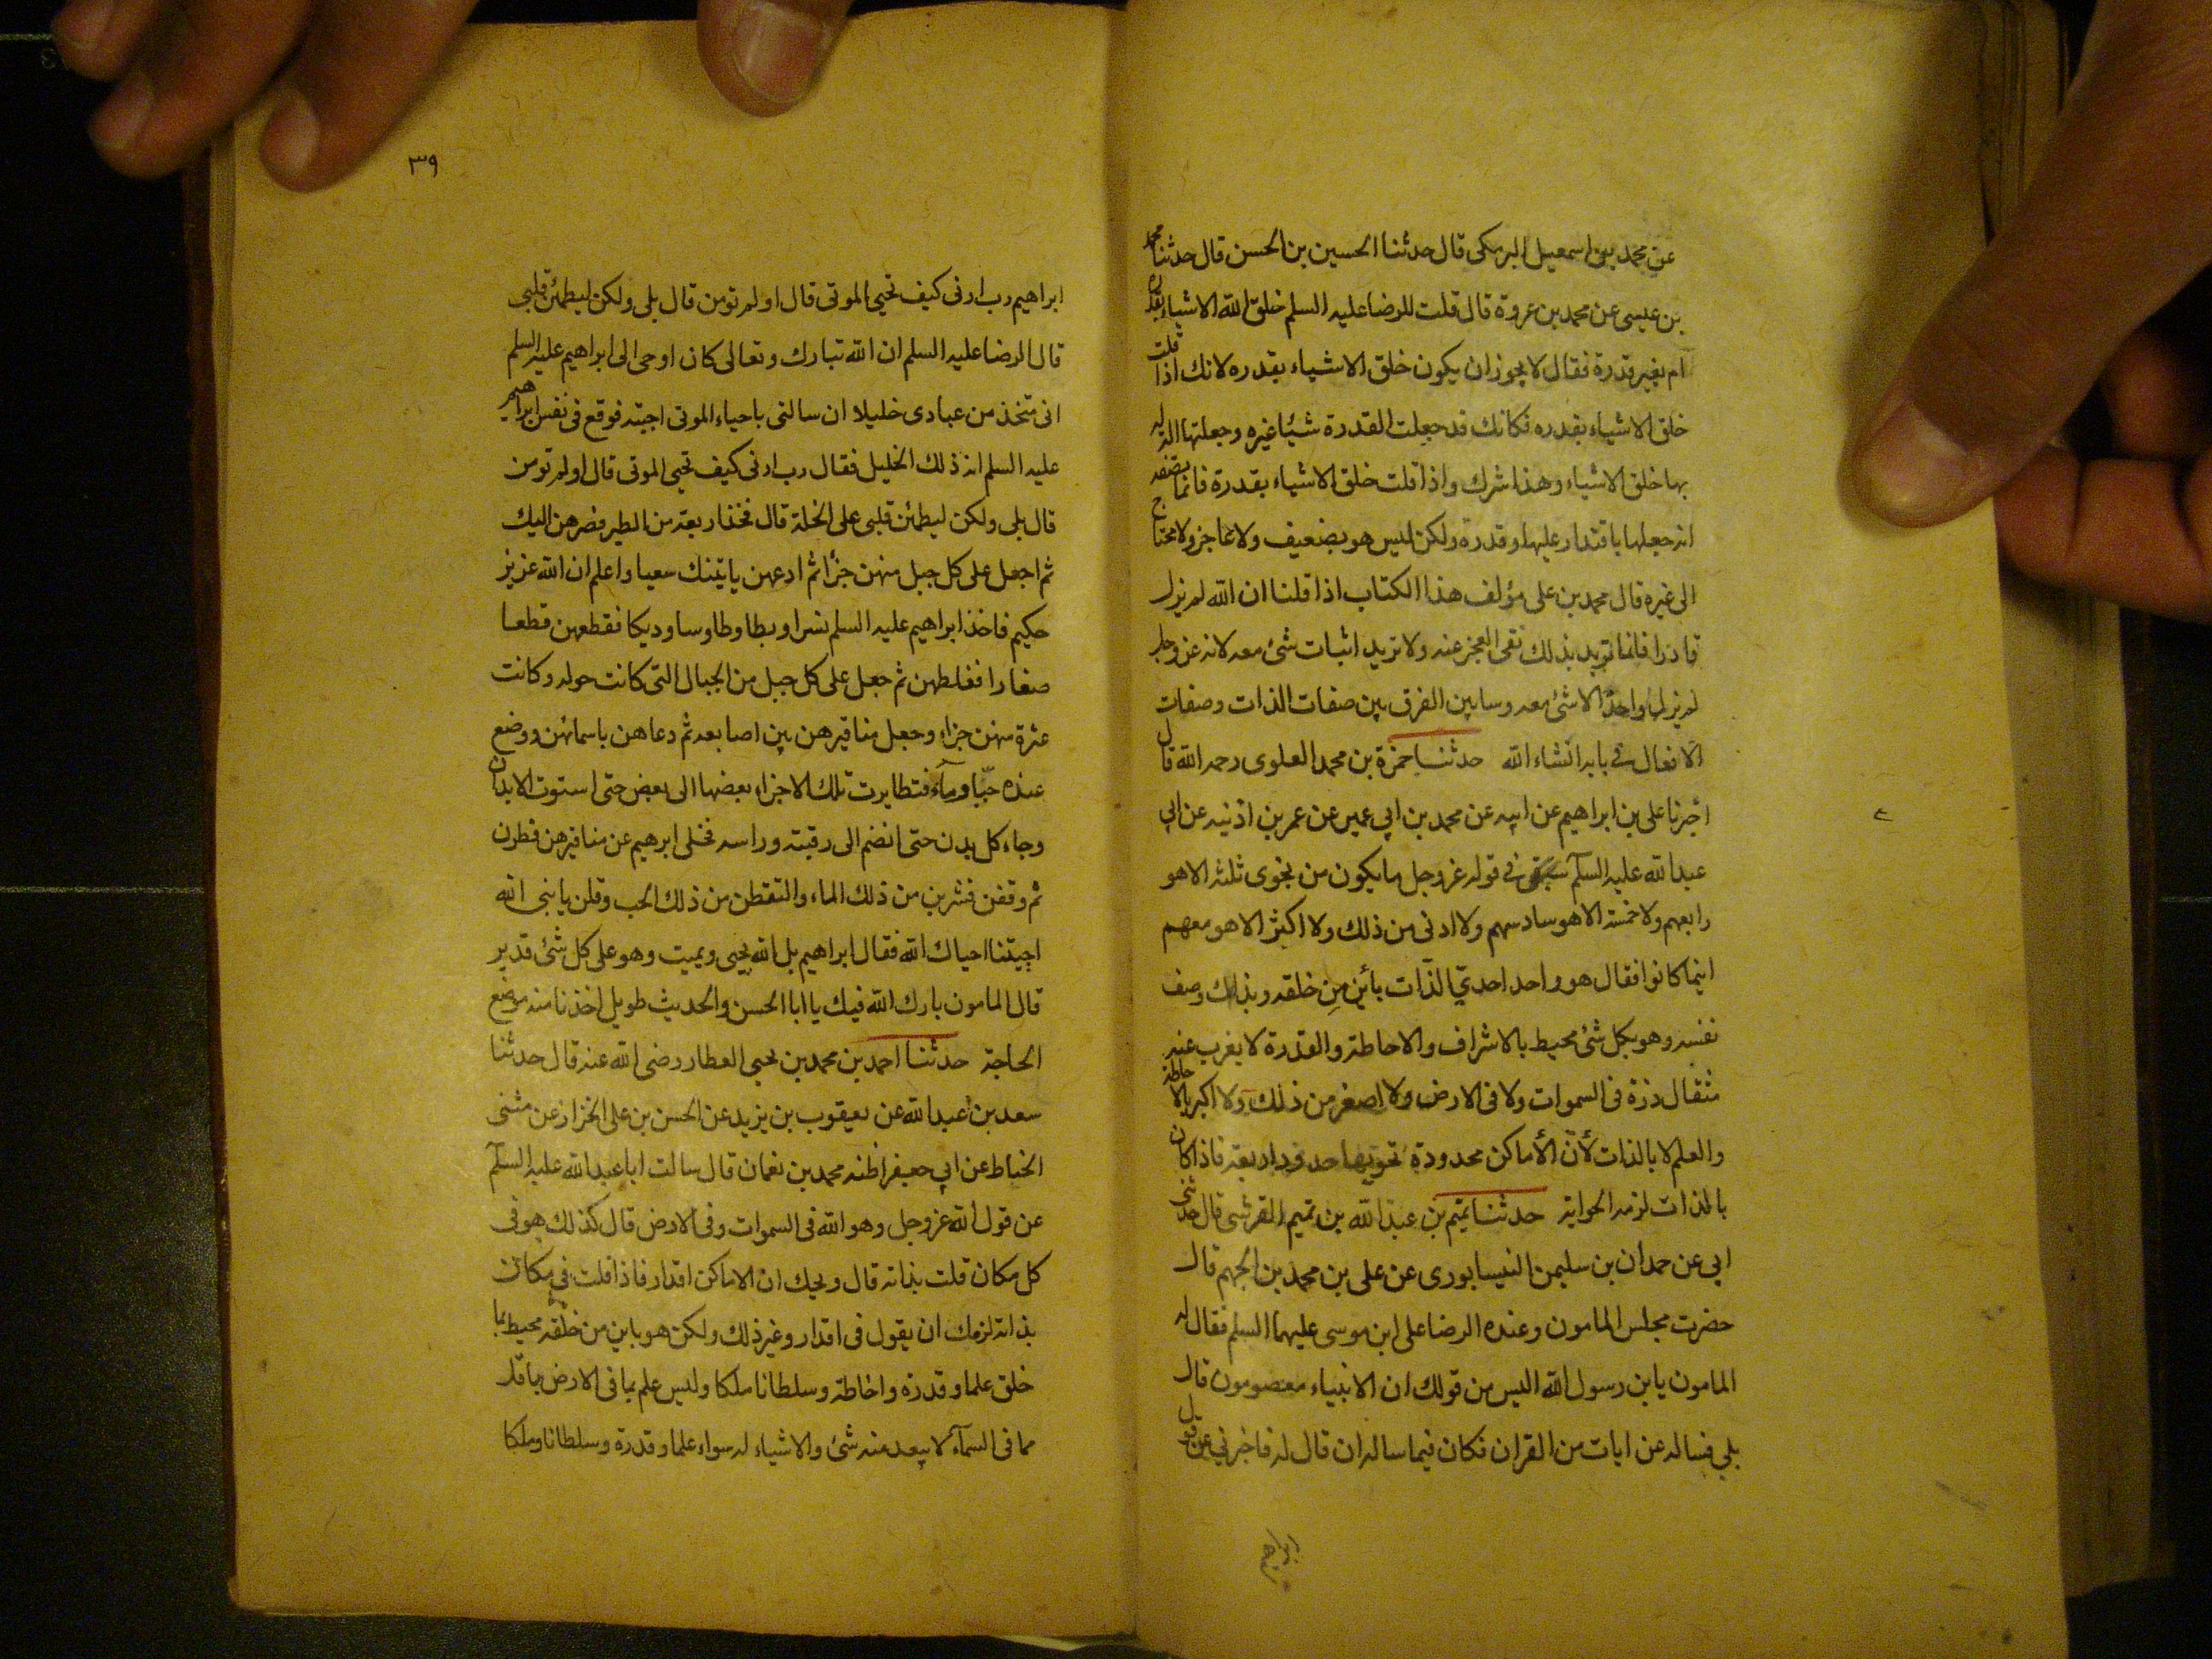 عن محمد بن اسمعيل البرمكى قال حدثنا الحسين بن الحسن قال حدثنا محمد
بن عيسى عن محمد بن عروة قال قلت للرضا عليه السلم خلق الله الاشياء بقدره
ام بغير قدرة فقال لا يجوز ان يكون خلق الاشياء بقدره لانك اذا قلت
خلق الاشياء بقدره فكانك قد جعلت القدرة شيئا غيره وجعلتها الة له
بها خلق الاشياء وهذا شرك واذا قلت خلق الاشياء بقدرة فانما تصفه
انه جعلها باقتدار عليها وقدرة ولكن ليس هو بضعيف ولا عاجز ولا محتاج
الى غيره قال محمد بن على مؤلف هذا الكتاب اذا قلنا ان الله لم يزل
قادرا فانما نريد بذلك نفى العجز عنه ولا نريد اثبات شئ معه لانه عز وجل
لم يزل واحدا لا شئ معه وسابين الفرق بين صفات الذات وصفات
الافعال فى بابه انشاء الله حدثنا حمزة بن محمد العلوى رحمه الله قال
اخبرنا على بن ابراهيم عن ابيه عن محمد بن ابي عمير عن عمر بن اذنيه عن ابي
عبد الله عليه السلم فى قوله عز وجل ما يكون من نجوى ثلثه الا هو
رابعهم ولا خمسة الا هو سادسهم ولا ادنى من ذلك ولا اكثر الا هو معهم
اينما كانوا فقال هو واحد احدي الذات بائن من خلقه وبذلك وصف
نفسه وهو بكل شئ محيط بالاشراف والاحاطة والقدرة لا يغرب عنه
مثقال ذرة فى السموات ولا فى الارض ولا اصغر من ذلك ولا اكبر بالاحاطة
والعلم لا بالذات لأن الأماكن محدودة تحويها حدود اربعة فاذا كان
بالذات لزمه الحواية حدثنا تميم بن عبد الله بن تميم القرشى قال حدثنى
ابي عن حمدان بن سليمن النيسابورى عن على بن محمد بن الجهم قال
حضرت مجلس المامون وعنده الرضا على ابن موسى عليهما السلم فقال له
المامون يابن رسول الله اليس من قولك ان الانبياء معصومون قال
بلي فساله عن ايات من القران فكان فيما ساله ان قال له فاخبرني عن قول
ابراهيم
٣٩
ابراهيم رب ارنى كيف تحيي الموتى قال او لم تومن قال بلى ولكن ليطمئن قلبي
قال الرضا عليه السلم ان الله تبارك وتعالى كان اوحى الى ابراهيم عليه السلم
انى متخذ من عبادى خليلا ان سالنى باحياء الموتى اجبته فوقع فى نفس ابراهيم
عليه السلم انه ذلك الخليل فقال رب ارنى كيف تحيي الموتى قال او لم تومن
قال بلى ولكن ليطمئن قلبى على الخلة قال فخذ اربعة من الطير فصرهن اليك
ثم اجعل على كل جبل منهن جزأ ثم ادعهن ياتينك سعيا واعلم ان الله عزيز
حكيم فاخذ ابراهيم عليه السلم نسرا وبطا وطاوسا وديكا فقطعهن قطعا
صغارا فغلطهن ثم جعل على كل جبل من الجبال التى كانت حوله وكانت
عشرة منهن جزاء وجعل مناقيرهن بين اصابعه ثم دعاهن باسمائهن ووضع
عنده حبّا وماء فتطايرت تلك الاجزاء بعضها الى بعض حتى استوت الابدان
وجاء كل بدن حتى انضم الى رقبته وراسه فخلى ابرهيم عن مناقيرهن فطرن
ثم وقفن فشربن من ذلك الماء والتقطن من ذلك الحب وقلن يا نبى الله
احييتنا احياك الله فقال ابراهيم بل الله يحيى ويميت وهو على كل شئ قدير
قال المامون بارك الله فيك يا ابا الحسن والحديث طويل اخذنا منه موضع
الحاجة حدثنا احمد بن محمد بن يحيى العطار رضى الله عنه قال حدثنا
سعد بن عبد الله عن يعيقوب بن يزيد عن الحسن بن على الخزاز عن مثنى
الخياط عن ابي جعفر اظنه محمد بن نعمان قال سالت ابا عبد الله عليه السلم
عن قول الله عز وجل وهو الله فى السموات وفى الارض قال كذلك هو فى
كل مكان قلت بذاته قال ويحك ان الاماكن اقدار فاذا قلت فى مكان
بذاته لزمك ان يقول فى اقدار وغير ذلك ولكن هو باين من خلقه محيط بما
خلق علما وقدرة واحاطة وسلطانا ملكا وليس علم بما فى الارض باقل
مما فى السمآء لا يبعد منه شئ والاشياء له سواء علما وقدرة وسلطانا وملكا